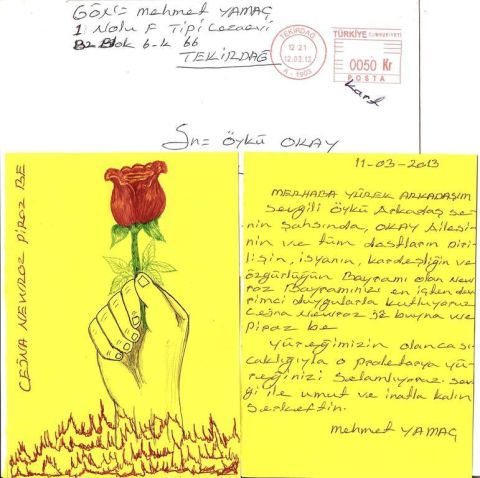 Gön= Mehmet YAMAÇ
1 Nolu F Tipi Cezaevi
B2 Blok 6-k 66
TEKİRDAĞ
TEKİRDAĞ
12 21
12.03.13
A - 1903
TÜRKİYE CUMHURİYETİ
0050 Kr
POSTA
kart
Sn= ÖYKÜ OKAY
CEJNA NEWROZ PİROZ BE
11-03-2013
MERHABA YÜREK ARKADAŞIM
Sevgili Öykü Arkadaş se-
nin şahsında, OKAY Ailesi-
nin ve tüm dostların diri-
lişin, isyanın, kardeşliğin ve
özgürlüğün Bayramı olan New
roz Bayramınızı en içten dev
rimci duygularla kutluyoruz
Cejna Newroz je buyna we
Piroz be
Yüreğimizin olanca sı
caklığıyla o proletarya yü-
reğinizi selamlıyoruz. sev
gi ile umut ve inatla kalın
Serkeftin.
Mehmet YAMAÇ